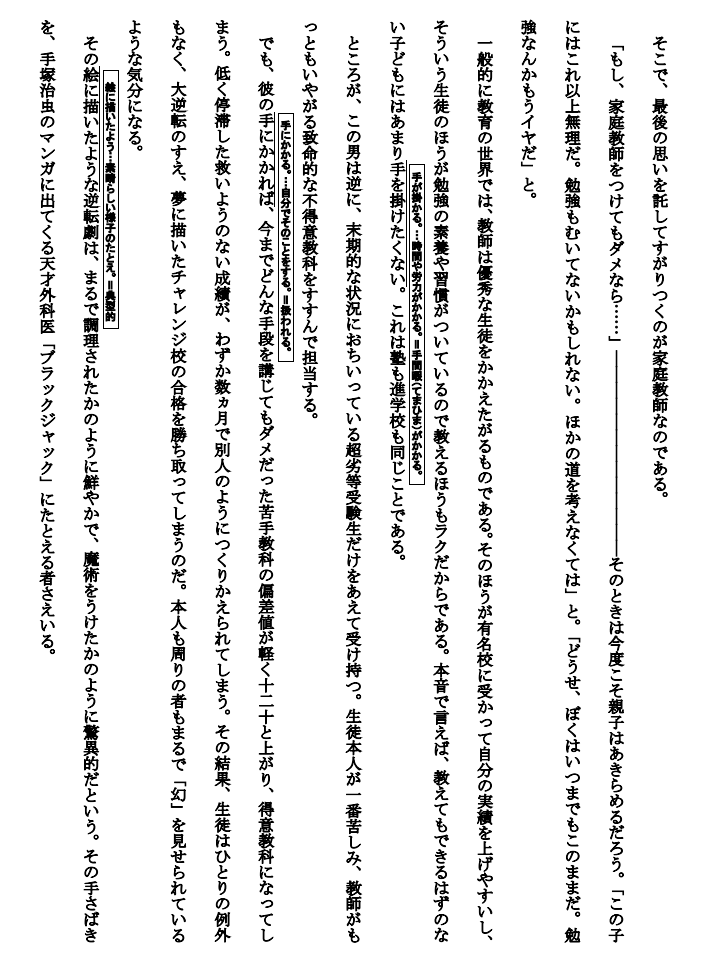 そこで、最後の思いを託してすがりつくのが家庭教師なのである。
「もし、家庭教師をつけてもダメなら……」――――――――そのときは今度こそ親子はあきらめるだろう。「この子
にはこれ以上無理だ。勉強もむいてないかもしれない。ほかの道を考えなくては」と。「どうせ、ぼくはいつまでもこのままだ。勉
強なんかもうイヤだ」と。
一般的に教育の世界では、教師は優秀な生徒をかかえたがるものである。そのほうが有名校に受かって自分の実績を上げやすいし、
そういう生徒のほうが勉強の素養や習慣がついているので教えるほうもラクだからである。本音で言えば、教えてもできるはずのな
手が掛かる。…時間や労力がかかる。＝手間暇(てまひま)がかかる。
い子どもにはあまり手を掛けたくない。これは塾も進学校も同じことである。
ところが、この男は逆に、末期的な状況におちいっている超劣等受験生だけをあえて受け持つ。生徒本人が一番苦しみ、教師がも
っともいやがる致命的な不得意教科をすすんで担当する。
手にかかる。…自分でそのことをする。＝扱われる。
でも、彼の手にかかれば、今までどんな手段を講じてもダメだった苦手教科の偏差値が軽く十二十と上がり、得意教科になってし
まう。低く停滞した救いようのない成績が、わずか数ヵ月で別人のようにつくりかえられてしまう。その結果、生徒はひとりの例外
もなく、大逆転のすえ、夢に描いたチャレンジ校の合格を勝ち取ってしまうのだ。本人も周りの者もまるで「幻」を見せられている
ような気分になる。
絵に描いたよう…素晴らしい様子のたとえ。＝典型的
その絵に描いたような逆転劇は、まるで調理されたかのように鮮やかで、魔術をうけたかのように驚異的だという。その手さばき
を、手塚治虫のマンガに出てくる天才外科医「ブラックジャック」にたとえる者さえいる。